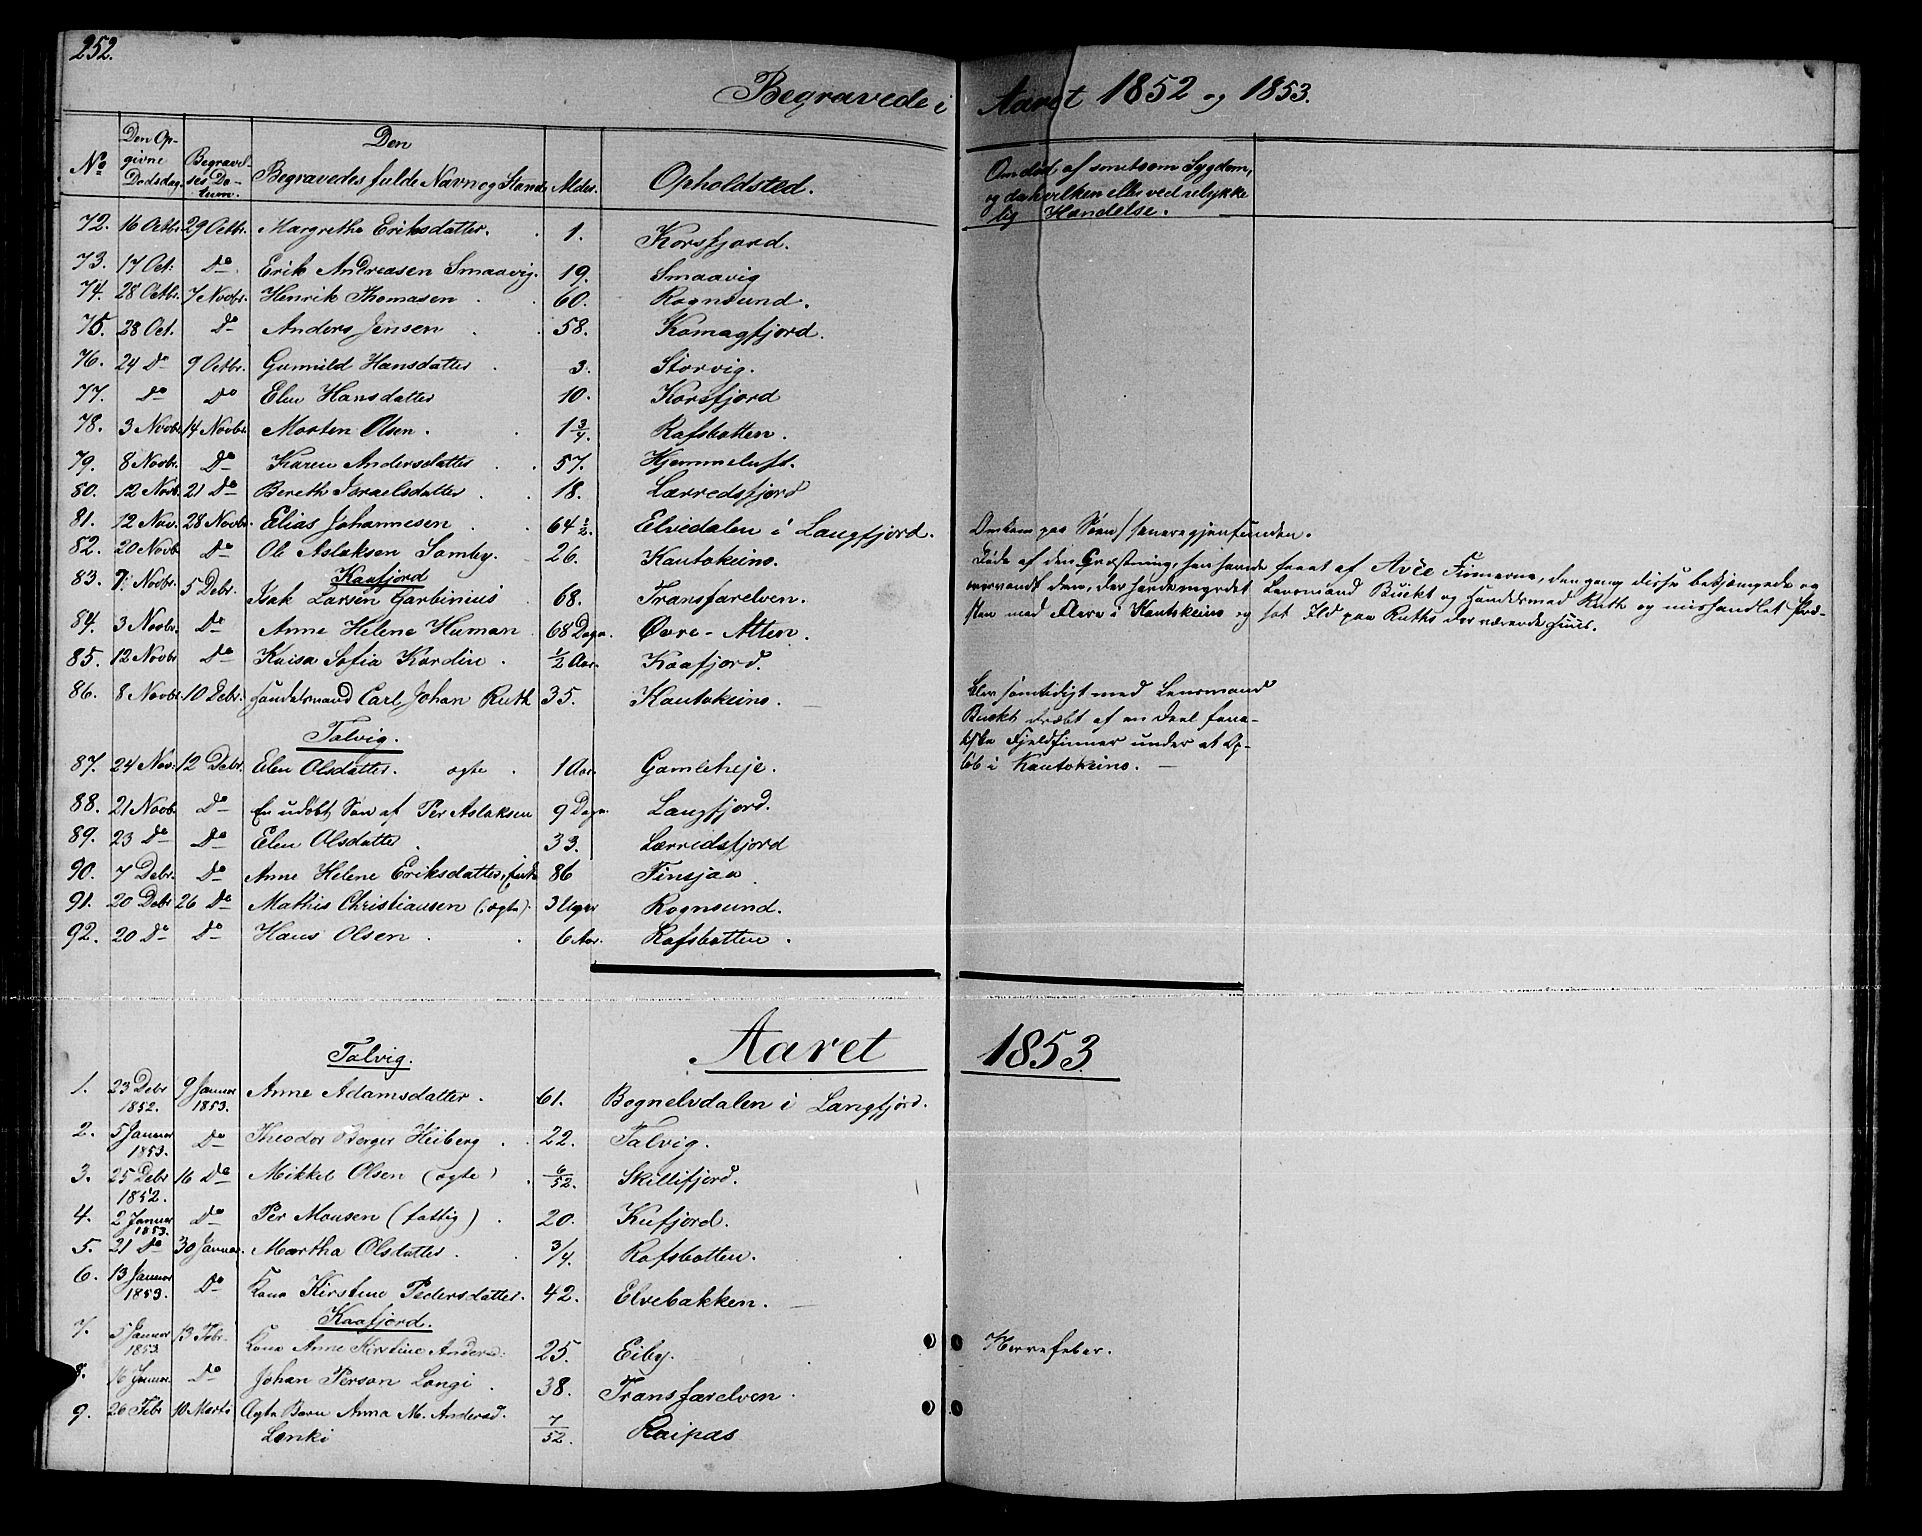 252.
Begravede i Aaret 1852 og 1853.
No Den Opgivne Dødsdag. Begravelses Datum. Den Begravedes fulde Navn og Stand Alder. Opholdsted. Om død af smitsom Sygdom, og da hvilken eller ved ulykkelig Hændelse.
72. 16 Octbr. 29 Octbr. Margrethe Eriksdatter. 1. Korsfjord.
73. 17 Oct: Do Erik Andreasen Smaavig. 19. Smaavig
74. 28 Octbr. 7 Novbr. Henrik Thomasen 60. Rognsund.
75. 28 Oct. Do Anders Jensen 58. Komagfjord.
76. 24 Do 9 Octbr. Gunnild Hansdatter 3. Storvig.
77. Do Do Elen Hansdatter 10. Korsfjord
78. 3 Novbr. 14 Novbr. Morten Olsen. 1 3/4. Rafsbotten.
79. 8 Novbr. Do Karen Andersdatter 57. Hjemmeluft.
80. 12 Novb. 21 Do Bereth Israelsdatter 18. Lærredsfjord
81. 12 Nov. 28 Novbr. Elias Johannesen 64 1/2. Elvedalen i Langfjord. Omkom paa Søen / senere gjenfunden.
82. 20 Novb. Do Ole Aslaksen Somby. 26. Kautokeino. Døde af den Græstning, han havde faaet af Avče Finnerne, den gang disse bekjæmpede og
Kaafjord
83. 7. Novbr. 5 Debr. Isak Larsen Garbinius 68. Transfarelven. overvandt dem, der havde myrdet Lensmand Bucht og Handelsmad Ruth og mishandlet Præ-
84. 3 Novbr. Do Anne Helene Human 68 Dage. Øvre-Alten. sten med Flere i Kautokeino og sat Ild paa Ruths der værende Huus.
85. 12 Novbr Do Kaisa Sofia Kardin 1/2 Aar. Kaafjord.
86. 8 Novbr. 10 Debr. Handelsmand Carl Johan Ruth 35. Kautokeino. Blev samtidigt med Lensmand
Bucht dræbt af en Deel fana-
tiske Fjeldfinner under et Op-
løb i Kautokeino.
Talvig.
87. 24 Nov: 12 Debr. Elen Olsdatter. ægte 1 Aar. Gamleheje.
88. 21 Novbr. Do En udøbt Søn af Per Aslaksen 9 Dage. Langfjord.
89. 23 Do Do Elen Olsdatter 33. Lærredsfjord
90. 7 Debr. Do Anne Helene Eriksdatter, 86 Finsjaa
91. 20 Debr 26 Do Mathis Christiansen (ægte). 3 Uger Rognsund.
92. 20 Do Do Hans Olsen 6 Aar. Rafsbotten.
Aaret 1853.
Talvig.
1. 23 Debr 1852. 9 Januar 1853. Anne Adamsdatter. 61. Bognelvdalen i Langfjord.
2. 5 Januar 1853. Do Theodor Berger Heiberg 22. Talvig.
3. 25 Debr 1852. 16 Do Mikkel Olsen (ægte) 6/52. Skillifjord.
4. 2 Januar 1853. Do Per Monsen (fattig) 20. Kufjord.
5. 21 Do 30 Januar. Martha Olsdatter. 3/4. Rafsbotten.
6. 13 Januar 1853. Do Kone Kirstine Pedersdatter. 42. Elvebakken.
Kaafjord.
7. 5 Januar 1853 13 Febr. Kone Anne Kirstine Andersd: 25. Eiby. Nervefeber.
8. 16 Januar. Do Johan Person Langi 38. Transfarelven
9. 26 Febr 10 Marts Ægte Barn Anna M. Andersd. 7/52. Raipas
Lanki